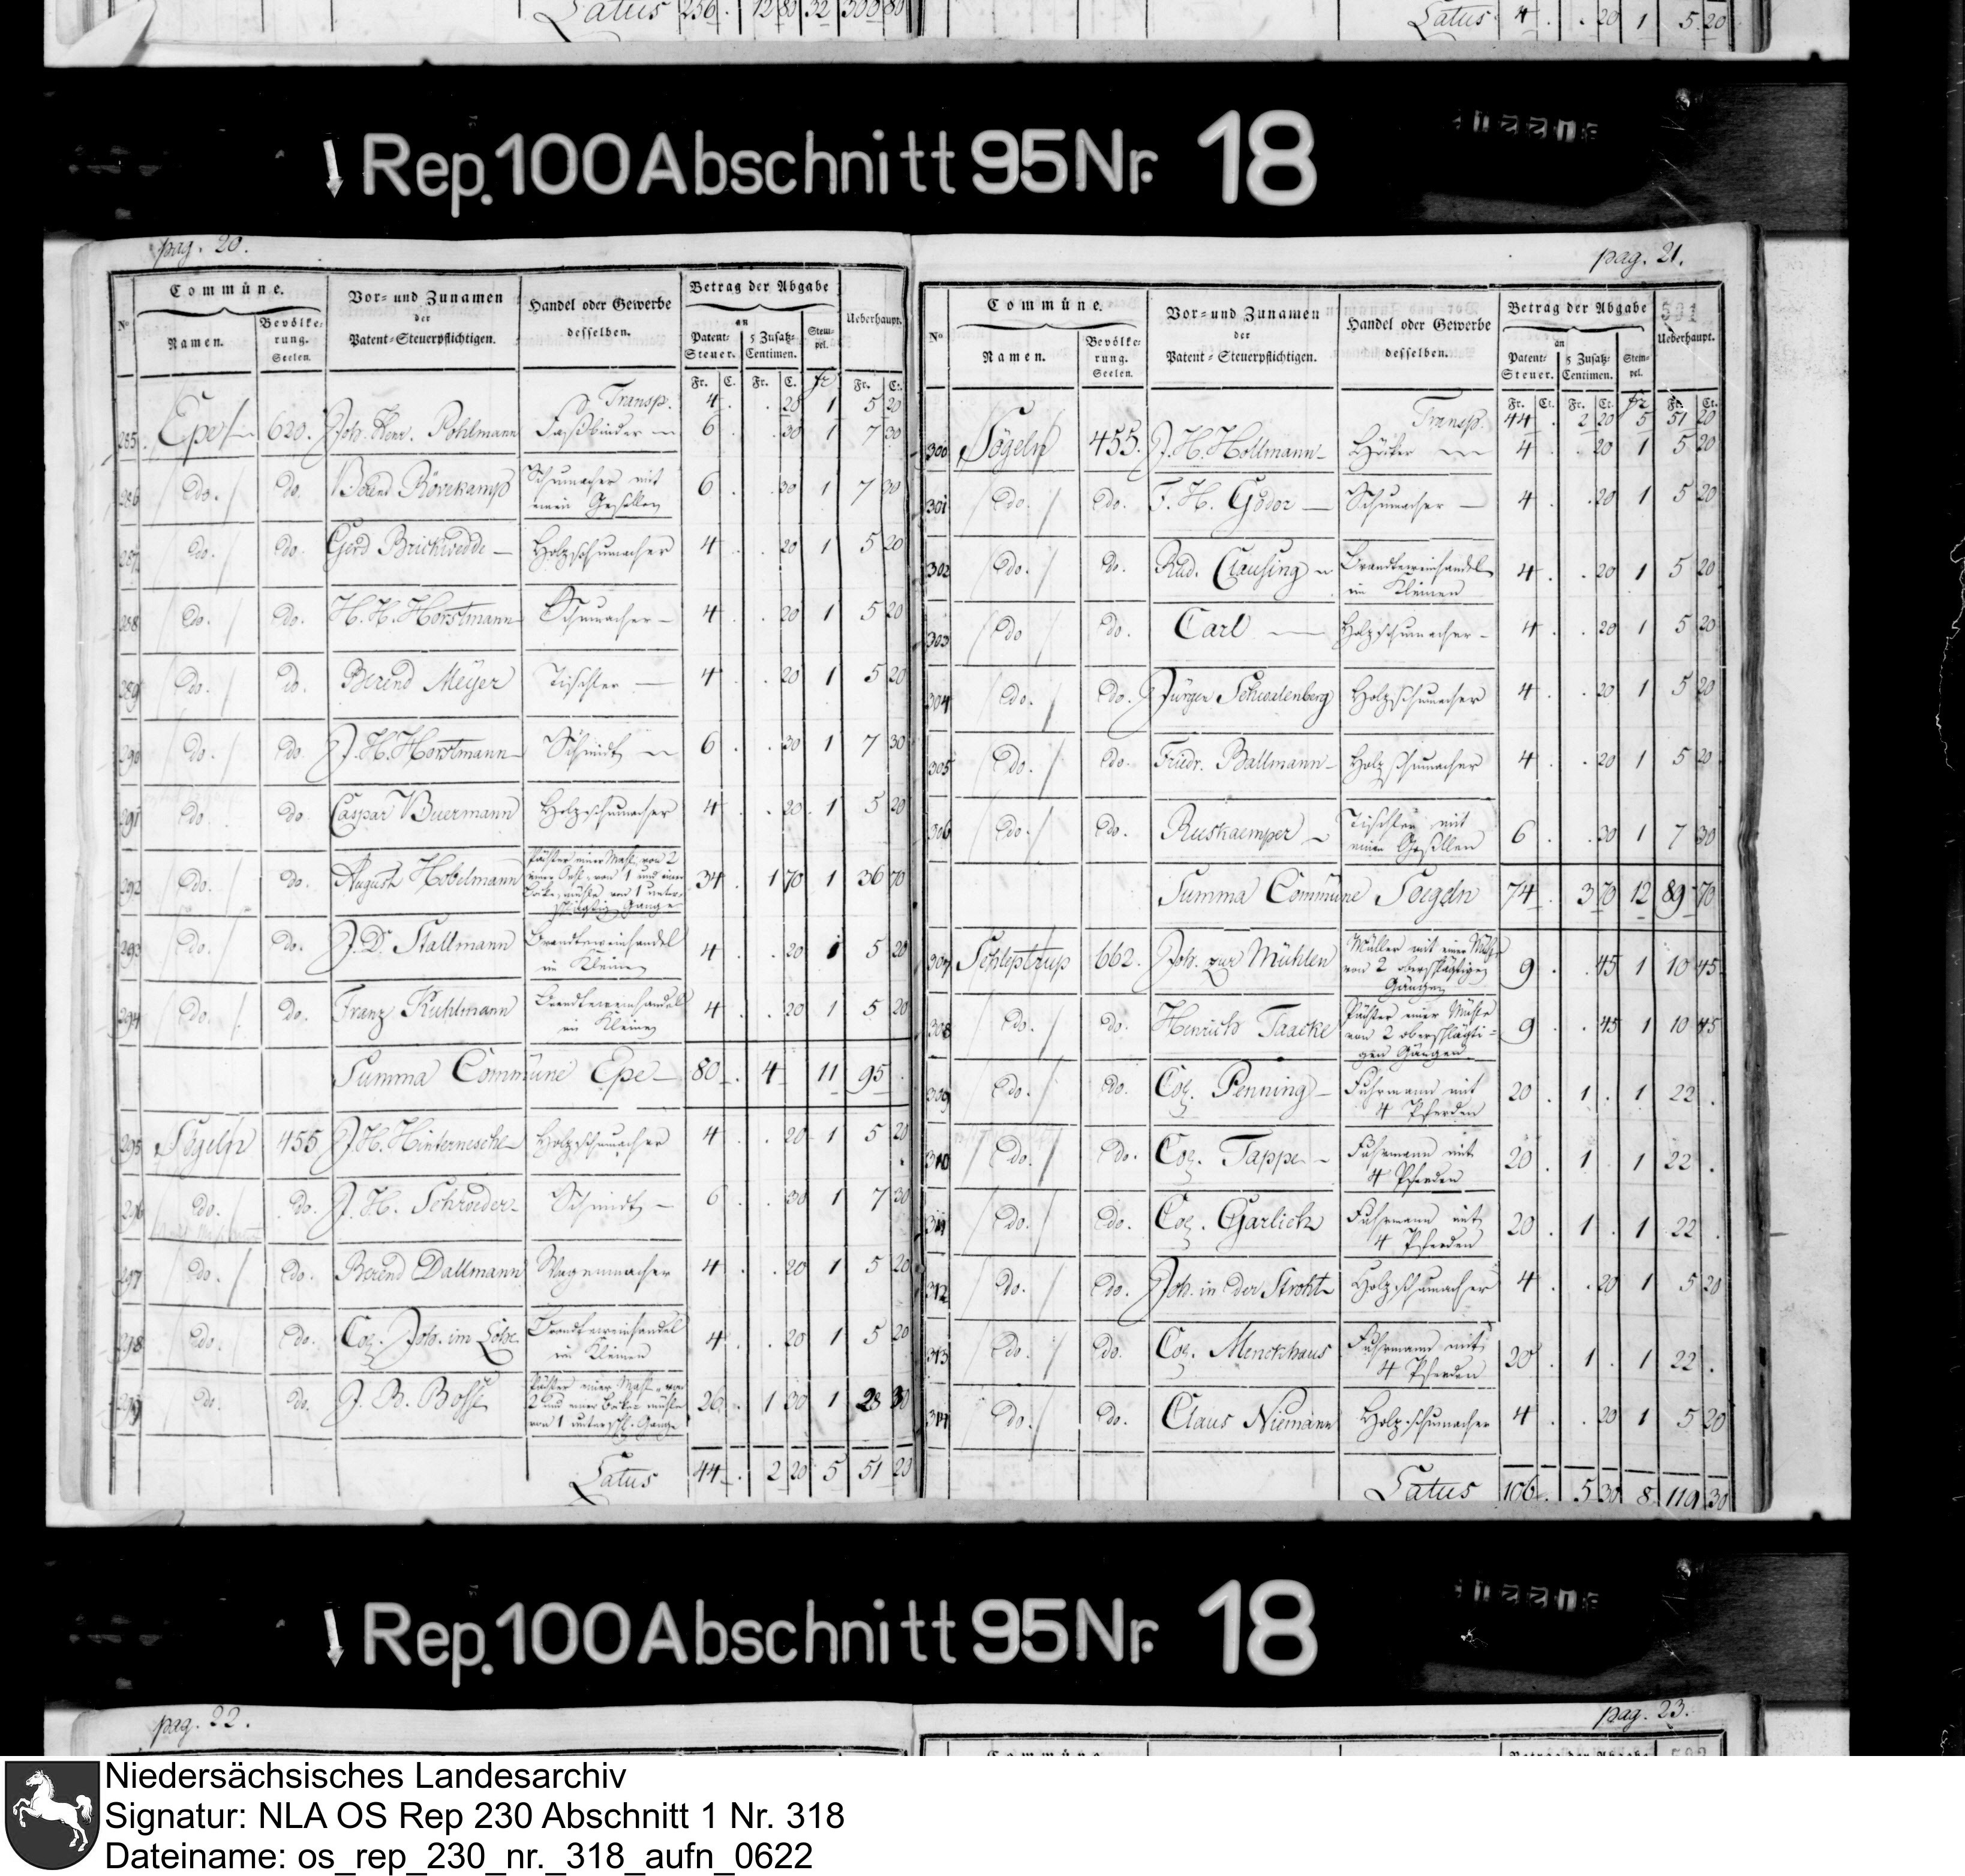 Latus 256 . 12 80 32 300 80
Latus 4 . . 20 1 5 20
Rep. 100 Abschnitt 95 Nr. 18
pag. 20.
Commüne.
Betrag der Abgabe
No
Namen.
Bevölke=
rung.
Seelen.
Vor= und Zunamen
der
Patent=Steuerpflichtigen.
Handel oder Gewerbe
desselben.
an
Patent=
Steuer.
5 Zusatz=
Centimen.
Stem=
pel.
Ueberhaupt.
Fr. C. Fr. C. fr Fr. Ct.
Transp. 4 . . 20 1 5 20
285. Epe 620. Joh. Henr. Pohlmann Faßbinder 6 . . 30 1 7 30
286 do. do. Berend Rövekamp Schumacher mit 6 . . 30 1 7 30
einen Gesellen
287 do. do. Gerd Brickwedde Holzschumacher 4 . . 20 1 5 20
288 do. do. H. H. Horstmann Schumacher 4 . . 20 1 5 20
289 do. do. Berend Meÿer Tischler 4 . . 20 1 5 20
290 do. do. J. H. Horstmann Schmidt 6 . . 30 1 7 30
291 do. do. Caspar Buermann Holzschumacher 4 . . 20 1 5 20
292 do. do. August Hobelmann Pächter einer Mahl von 2 34 . 1 70 1 36 70
einer Oehl von 1 und einer
Boke mühle von 1 unter=
schlägtig Gange
293 do. do. J. D. Stallmann Brandteweinhandel 4 . . 20 1 5 20
im Kleinen
294 do. do. Franz Kuhlmann Brandteweinhandel 4 . . 20 1 5 20
im Kleinen
Summa Commüne Epe 80 . 4 11 95 .
295 Sögeln 455 J. H. Hinterneseke Holzschumacher 4 . . 20 1 5 20
296 do. do. J. H. Schroeder Schmidt 6 . . 30 1 7 30
297 do. do. Berend Dallmann Wagenmacher 4 . . 20 1 5 20
298 do. do. Col. Joh. im Lohe Brandteweinhandel 4 . . 20 1 5 20
im Kleinen
299 do. do. J. B. Bosse Pächter einer Mahl von 26 . 1 30 1 28 30
2 und einer Boke mühle
von 1 unterschl. Gange
Latus 44 . 2 20 5 51 20
pag. 21.
Commüne.
Betrag der Abgabe
591
No
Namen.
Bevölke=
rung.
Seelen.
Vor= und Zunamen
der
Patent=Steuerpflichtigen.
Handel oder Gewerbe
desselben.
an
Patent=
Steuer.
5 Zusatz=
Centimen.
Stem=
pel.
Ueberhaupt.
Fr. Ct. Fr. Ct. fr Fr. Ct.
Transp. 44 . 2 20 5 51 20
300 Sögeln 455. J. H. Hollmann Höcker 4 . . 20 1 5 20
301 do. do. F. H. Gösor Schumacher 4 . . 20 1 5 20
302 do. do. Rud. Clausing Brandteweinhandel 4 . . 20 1 5 20
im Kleinen
303 do do. Carl Holzschumacher 4 . . 20 1 5 20
304 do. do. Jürgen Schwalenberg Holzschumacher 4 . . 20 1 5 20
305 do. do. Friedr. Ballmann Holzschumacher 4 . . 20 1 5 20
306 do. do. Ruskaemper Tischler mit 6 . . 30 1 7 30
einen Gesellen
Summa Commüne Soegeln 74 . 3 70 12 89 70
307 Schleptrup 662. Joh. zur Mühlen Müller mit einer Mühle 9 . . 45 1 10 45
von 2 oberschlägtigen
Gängen
308 do. do. Hinrich Taacke Pächter einer Mühle 9 . . 45 1 10 45
von 2 oberschlägti=
gen Gängen
309 do. do. Col. Penning Fuhrmann mit 20 . 1 . 1 22 .
4 Pferden
310 do. do. Col. Tappe Fuhrmann mit 20 . 1 . 1 22 .
4 Pferden
311 do. do. Col. Garlich Fuhrmann mit 20 . 1 . 1 22 .
4 Pferden
312 do. do. Joh. in der Stroht Holzschumacher 4 . . 20 1 5 20
313 do. do. Col. Menckhaus Fuhrmann mit 20 . 1 . 1 22 .
4 Pferden
314 do. do. Claus Niemann Holzschumacher 4 . . 20 1 5 20
Latus 106 . 5 30 8 119 30
Rep. 100 Abschnitt 95 Nr. 18
pag. 22.
pag. 23.
Niedersächsisches Landesarchiv
Signatur: NLA OS Rep 230 Abschnitt 1 Nr. 318
Dateiname: os_rep_230_nr._318_aufn_0622